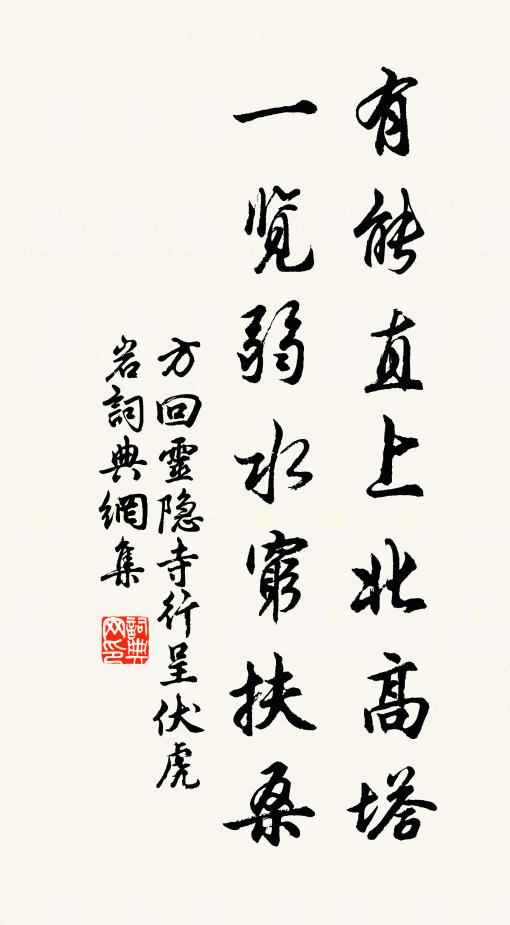 有能直上北高塔
一览弱水窮扶桑
方回靈隐寺行呈伏虎
岩詞典網集
詞典网印